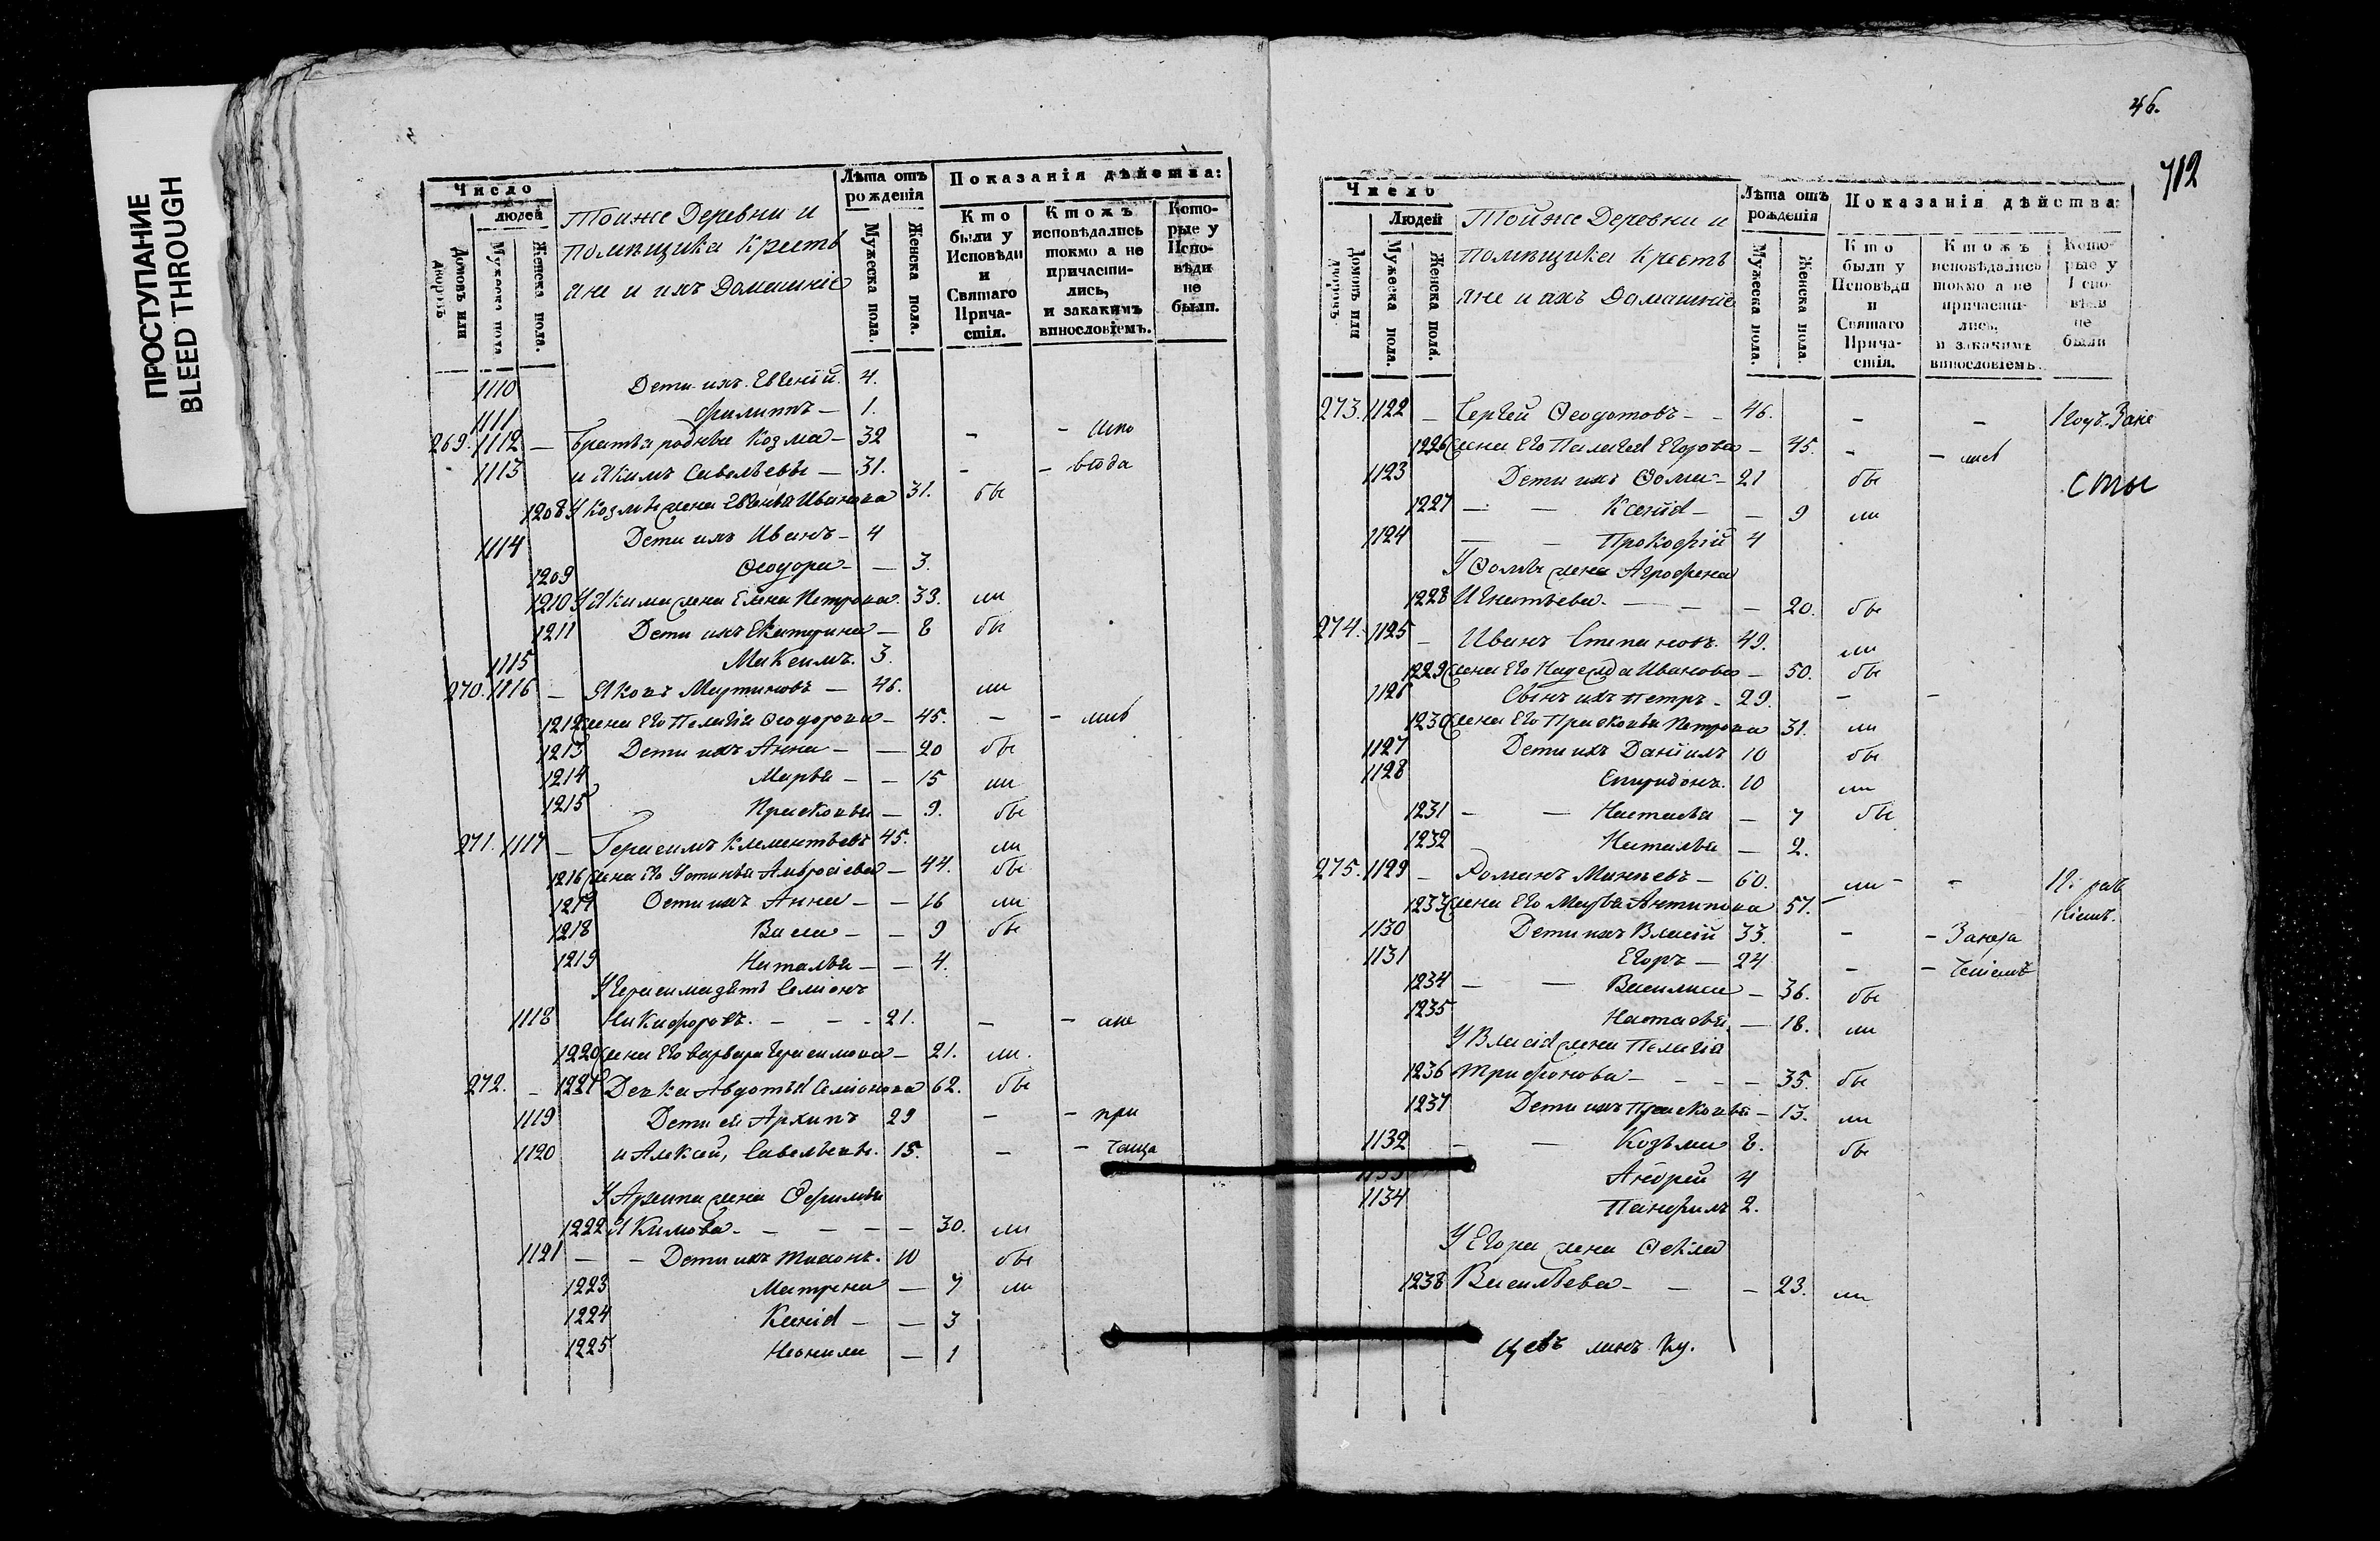 ПРОСТУПАНИЕ
BLEED THROUGH
Число
людей
Домовъ или дворовъ
Мужеска пола
Женска пола.
Тойже Деревни и
помѣщика Кресть
яне и ихъ Домашніе
Лѣта отъ
рожденія
Мужеска пола.
Женска пола.
Показанія дѣйства:
Кто
были у
Исповѣди
и
Святаго
Прича-
стія.
Ктожъ
исповѣдались
токмо а не
причасти-
лись,
и закакимъ
винословіемъ.
Кото-
рые у
Испо-
вѣди
не
были.
1110 Дети ихъ Евгеній. 4.
1111 Филиппъ – 1.
269. 1112 – Братья родные Козма – 32 –
1113 и Якимъ Савельевы – 31. – –
1208 У Козмы жена Евгенья Иванова 31. бы
1114 Дети ихъ Иванъ – 4
1209 Ѳеодора – – 3.
1210 У Якима жена Елена Петрова. 33. ли
1211 Дети ихъ Екатерина – 8 бы
1115 Максимъ. 3.
270. 1116 – Яковъ Мартиновъ – 46. ли
1212 жена Его Пелагія Ѳеодорова – 45. – –
1213 Дети ихъ Анна – – 20 бы
1214 Марья – – 15 ли
1215 Прасковья – 9. бы
271. 1117 – Герасимъ Клементьевъ 45. ли
1216 жена Его Устинья Амвросіева – 44. бы
1217 Дети ихъ Анна – – 16 ли
1218 Васса – – 9 бы
1219 Наталья – – 4.
У Герасима зять Семіонъ
1118 Никифоровъ. – – – 21. – –
1220 жена Его Варвара Герасимова – 21. ли.
272. – 1221 Девка Авдотья Семіонова 62. бы
1119 Дети ей Архипъ 29 – – при
1120 и Алексей, Савельевы. 15. – – чаща
У Архипа жена Ѳефимья
1222 Якимова – – – – – 30. ли
1121 – – Дети ихъ Тихонъ. 10 бы
1223 Матрена – 7 ли
1224 Ксенія – – 3
1225 Неонила – 1
46.
712
Число
Людей
Домовъ или дворовъ
Мужеска пола.
Женска пола.
Тойже Деревни и
помѣщика Кресть
яне и ихъ Домашніе
Лѣта отъ
рожденія
Мужеска пола.
Женска пола.
Показанія дѣйства:
Кто
были у
Исповѣди
и
Святаго
Прича-
стія.
Ктожъ
исповѣдались
токмо а не
причасти-
лись,
и закакимъ
винословіемъ.
Кото-
рые у
Испо-
вѣди
не
были
273. 1122 – Сергей Ѳеодотовъ – – 46. – –
1226 жена Его Пелагея Егорова – 45. – –
1123 Дети ихъ Ѳома – 21 бы
1227 – – Ксенія – – 9 ли
1124 – – Прокофій 4
У Ѳомы жена Агрофена
1228 Игнатьева. – – – 20. бы
274. 1125 – Иванъ Степановъ. 49. ли
1229 жена Его Надежда Иванова – 50. бы
1126 Сынъ ихъ Петръ – 29. – –
1230 жена Его Прасковья Петрова 31. ли
1127 Дети ихъ Даніилъ 10 бы
1128 Спиридонъ. 10 ли
1231 – – Настасья – 7 бы
1232 Наталья – 2.
275. 1129 – Романъ Минѣевъ – 60. ли – –
1233 жена Его Марья Антипова 57. –
1130 Дети ихъ Власій 33. – –
1131 Егоръ – 24 – –
1234 – – Василиса – 36. бы
1235 Настасья – 18. ли
У Власія жена Пелагія
1236 Трифонова – – – – 35. бы
1237 Дети ихъ Прасковья – 13. ли
1132 – – Козьма 8. бы
1133 Андрей 4
1134 Панфилъ 2.
У Егора жена Ѳекла
1238 Васильева – – – 23. ли